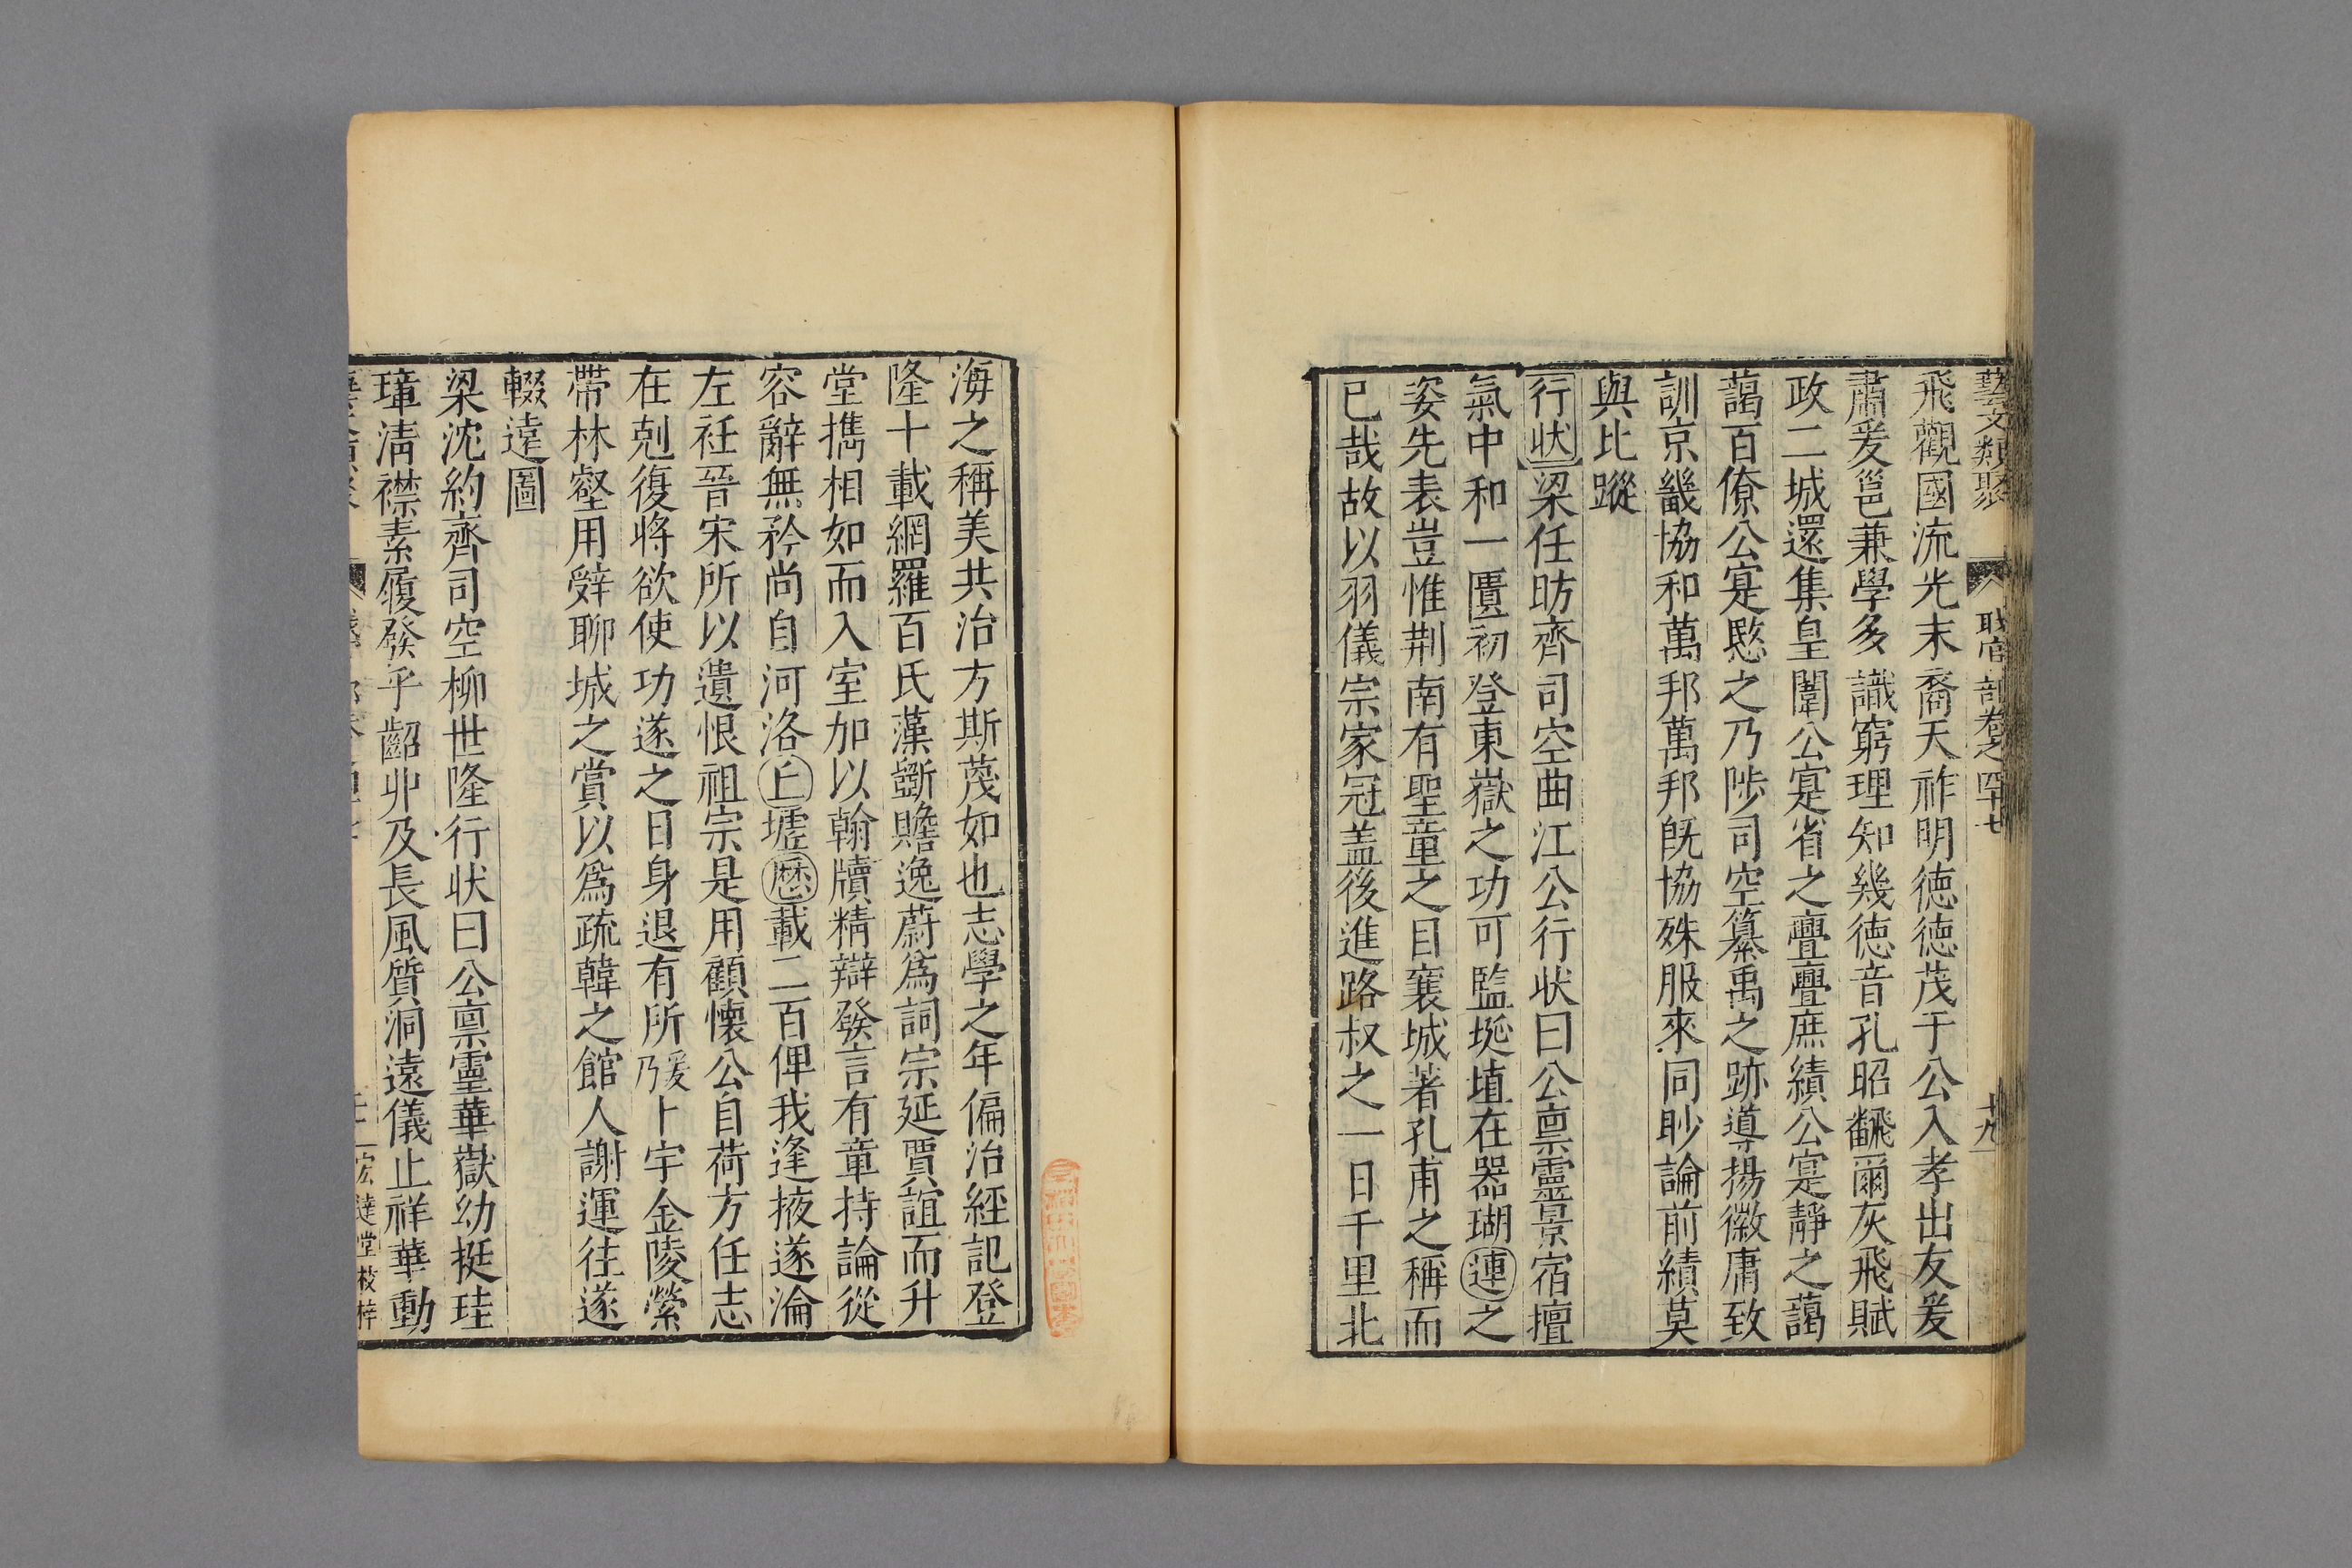 藝文類聚 職官部卷之四十七 十九
飛觀國流光末裔天祚明徳徳茂于公入孝出友爰
肅爰邕兼學多識窮理知幾徳音孔昭飜爾灰飛賦
政二城還集皇闈公寔省之亹亹庶績公寔靜之藹
藹百僚公寔毖之乃陟司空纂禹之跡導揚徽庸致
訓京畿協和萬邦萬邦旣協殊服來同眇論前績莫
與比蹤
行状梁任昉齊司空曲江公行状曰公禀靈景宿壇
氣中和一匱初登東嶽之功可監埏埴在器瑚連之
姿先表豈惟荆南有聖童之目襄城著孔甫之稱而
已哉故以羽儀宗家冠盖後進路叔之一日千里北
海之稱美共治方斯蔑如也志學之年偏治經記登
隆十載網羅百氏藻斵贍逸蔚爲詞宗延賈誼而升
堂攜相如而入室加以翰牘精辯發言有章持論從
容辭無矜尚自河洛丘墟歴載二百俾我逢掖遂淪
左衽晉宋所以遺恨祖宗是用顧懷公自荷方任志
在剋復將欲使功遂之日身退有所爰乃卜宇金陵縈
帶林壑用辤聊城之賞以爲疏韓之館人謝運往遂
輟遠圖
梁沈約齊司空柳世隆行状曰公禀靈華嶽幼挺珪
璋清襟素履發乎齠丱及長風質洞遠儀止祥華動